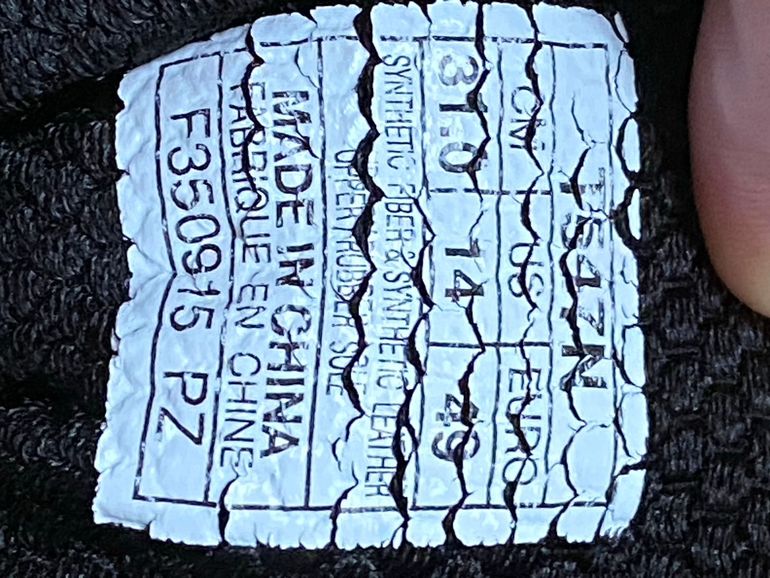 T547N
CM US EURO
31.0 14 49
SYNTHETIC FIBER & SYNTHETIC LEATHER
UPPER/RUBBER SOLE
MADE IN CHINA
FABRIQUE EN CHINE
F350915 PZ